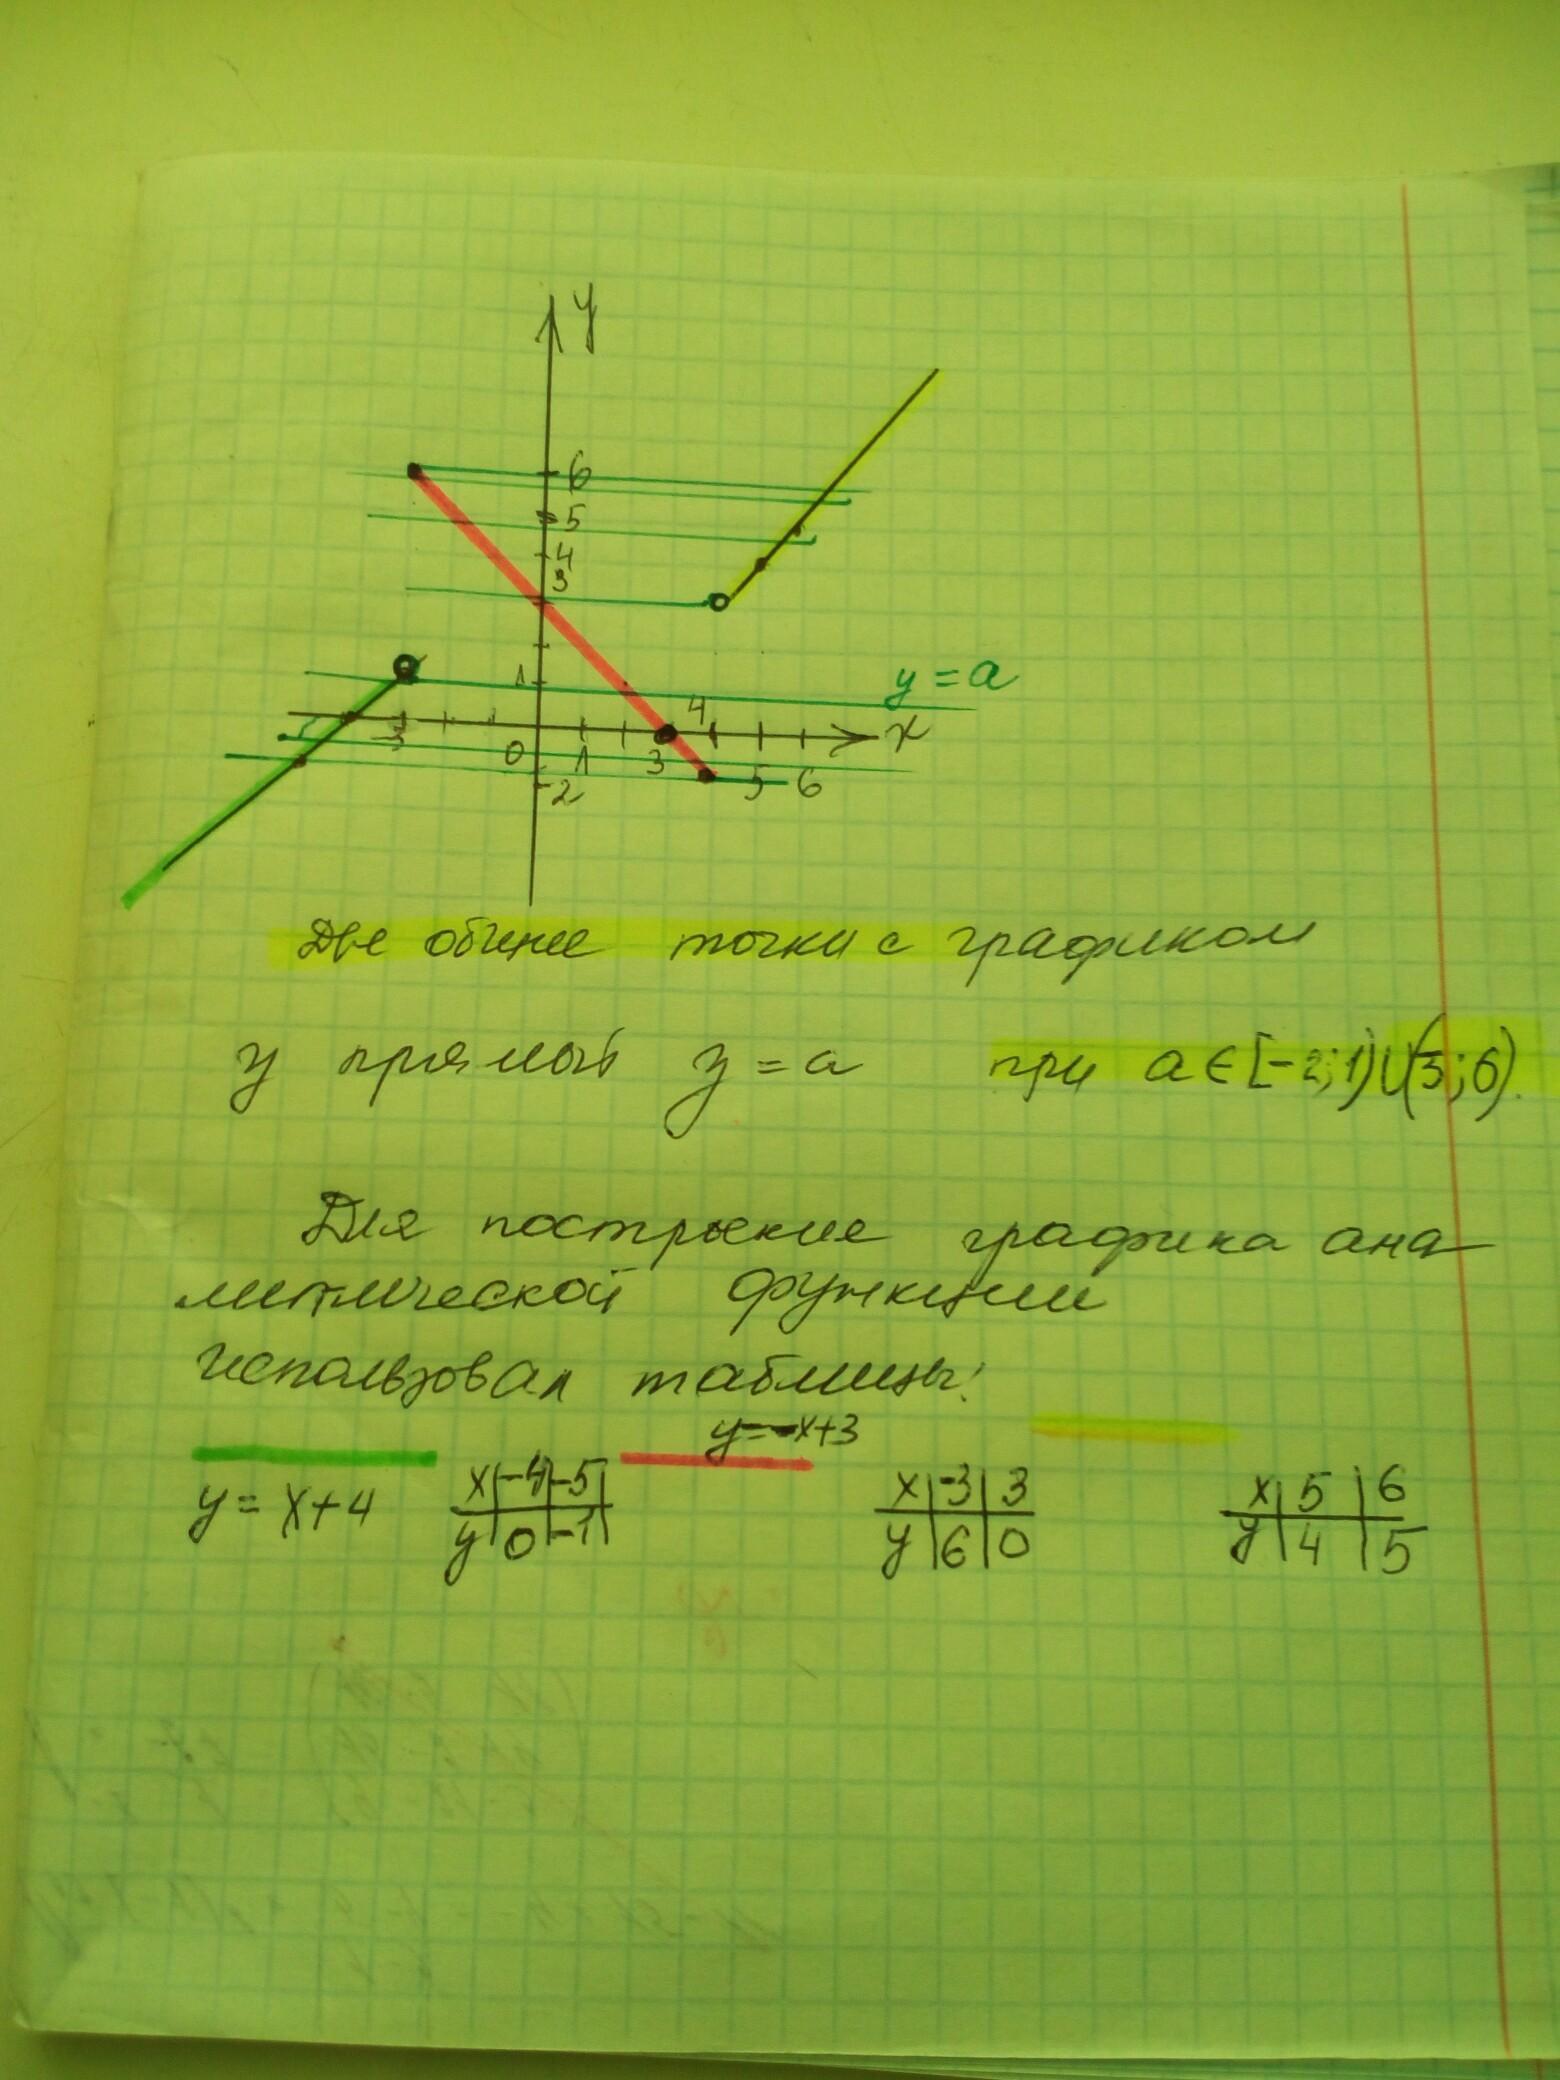 y
6
5
4
3
1
y = a
4
x
-3
0
1
3
5
6
-2
Две общие точки с графиком
у прямой y = a при a ∈ [-2; 1) ∪ (3; 6).
Для построение графика ана
литической функции
использовал таблицы:
y = -x+3
y = x+4
x | -4 | -5 |
y | 0 | -1 |
x | -3 | 3
y | 6 | 0
x | 5 | 6
y | 4 | 5